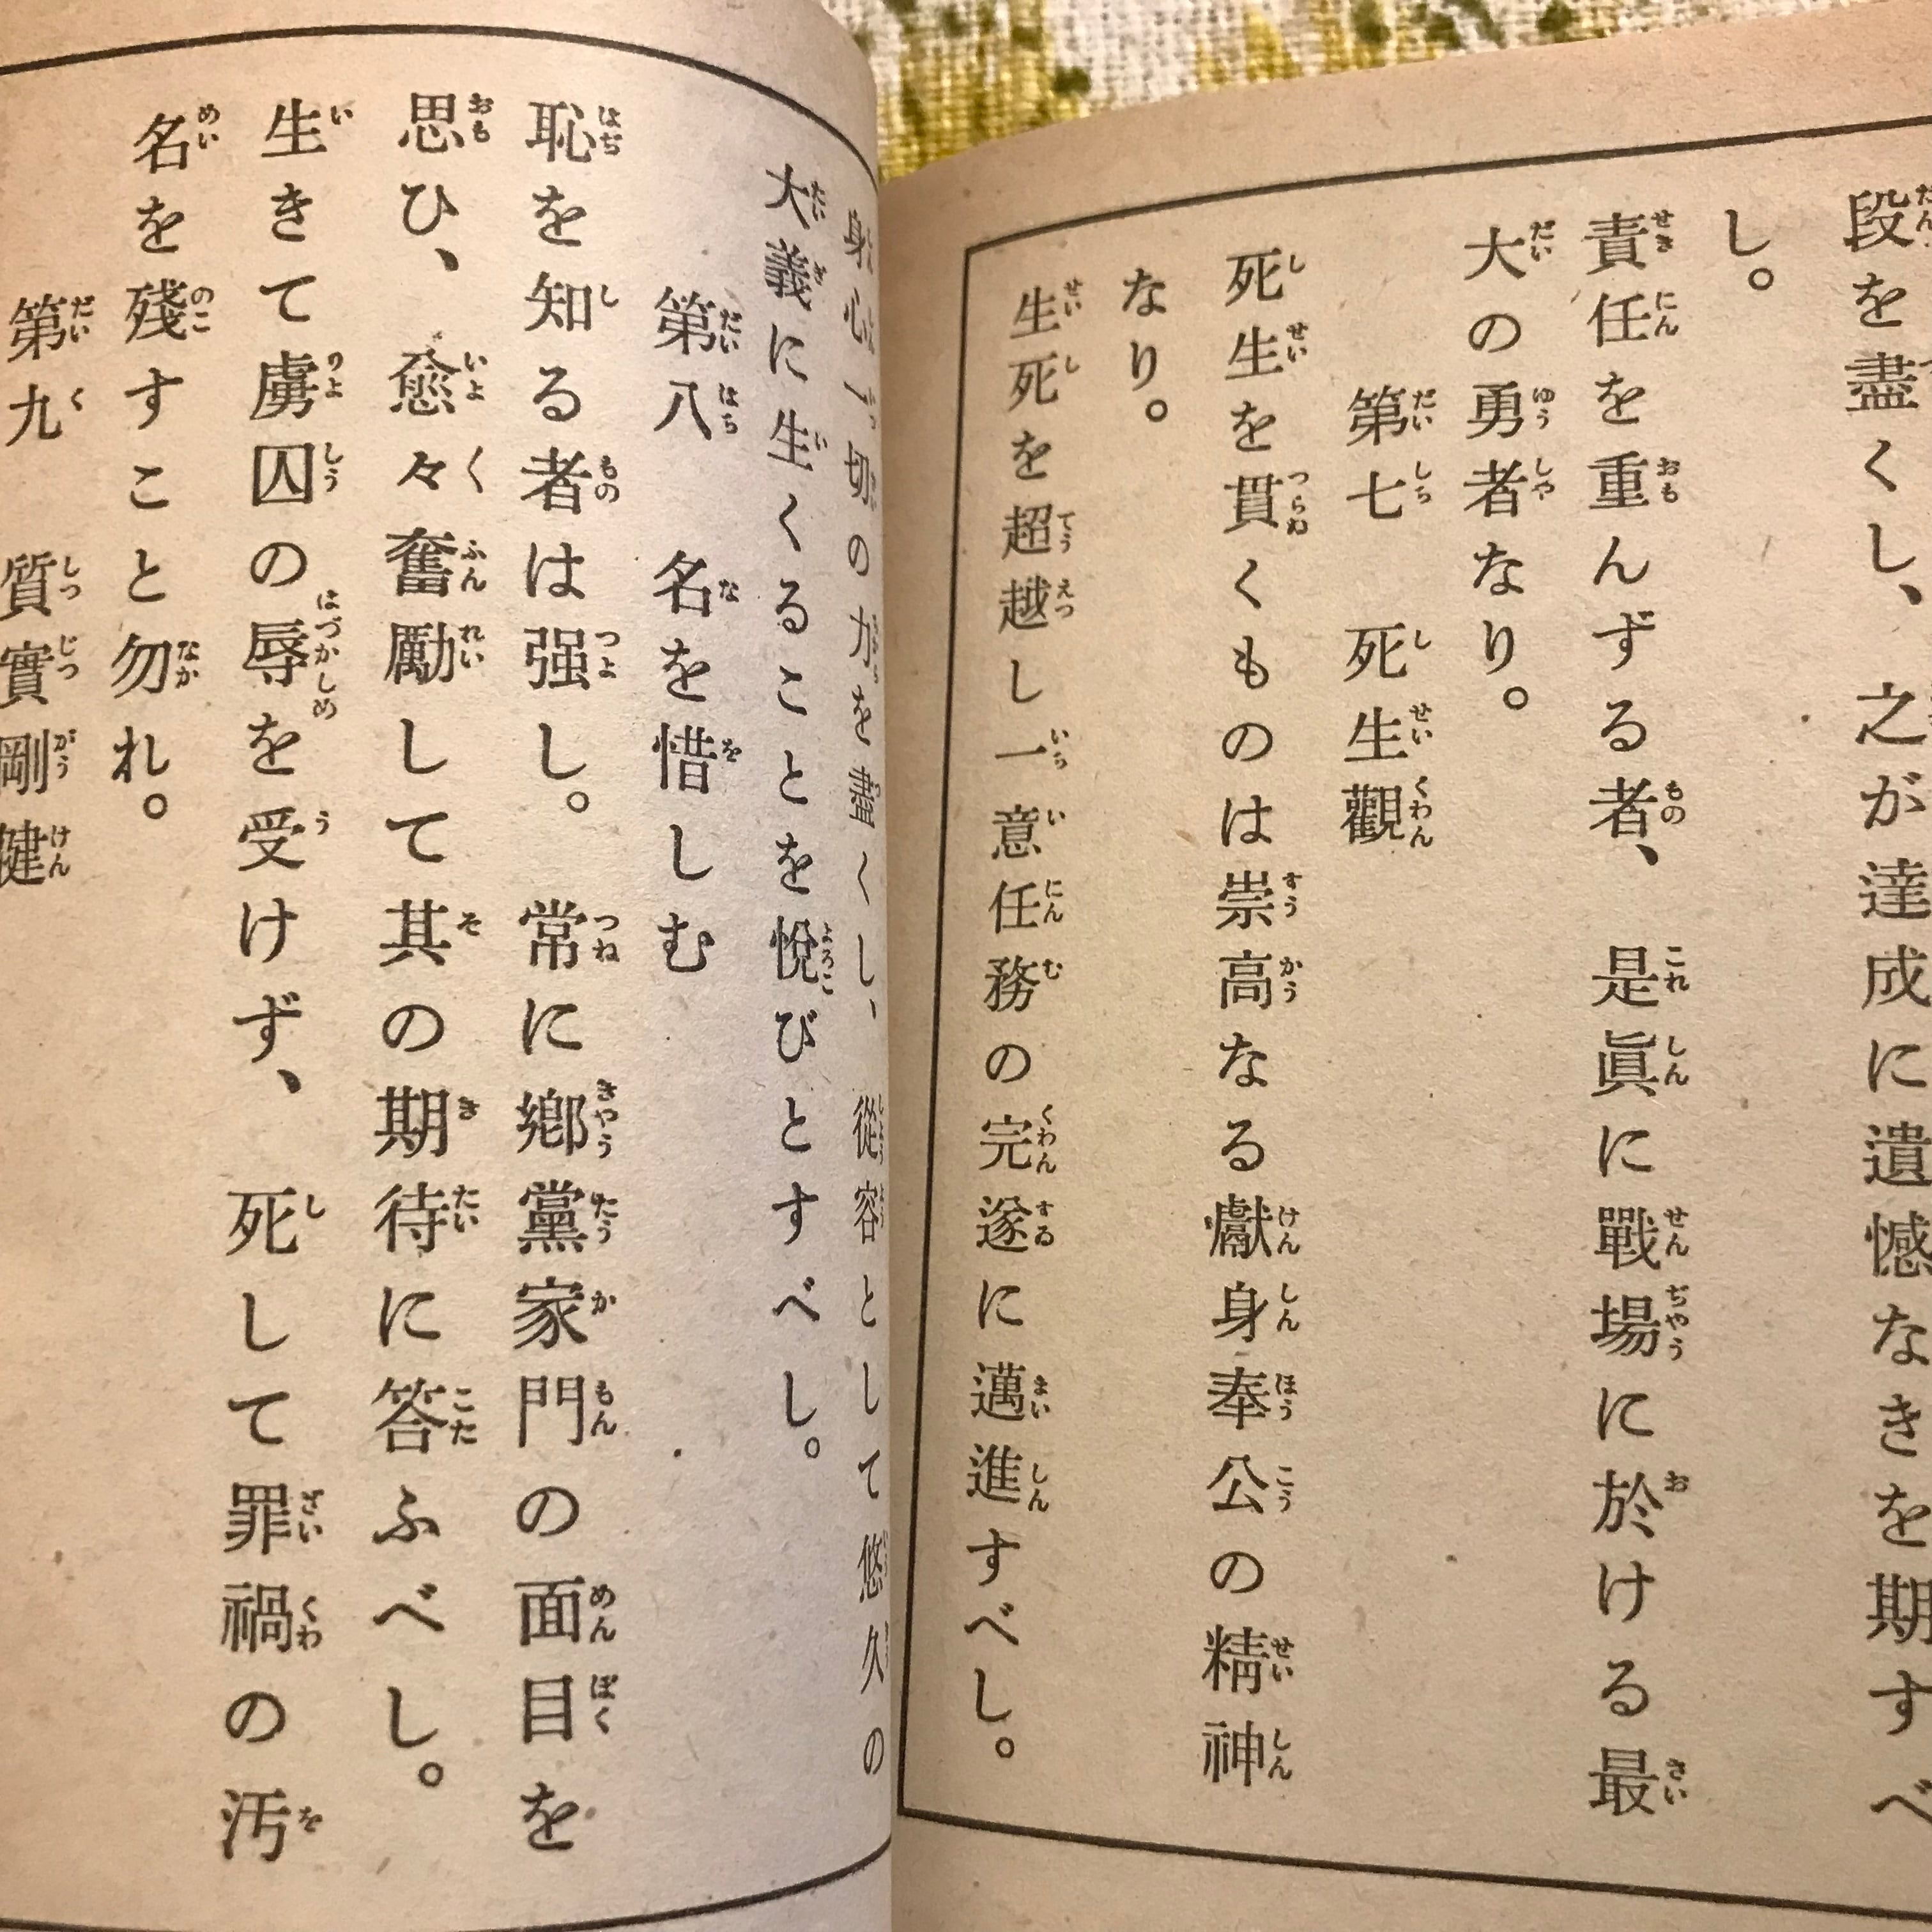 段を盡くし、之が達成に遺憾なきを期すべ
し。
責任を重んずる者、是眞に戰場に於ける最
大の勇者なり。
第七　死生觀
死生を貫くものは崇高なる獻身奉公の精神
なり。
生死を超越し一意任務の完遂に邁進すべし。
身心一切の力を盡くし、從容として悠久の
大義に生くることを悅びとすべし。
第八　名を惜しむ
恥を知る者は强し。常に鄕黨家門の面目を
思ひ、愈々奮勵して其の期待に答ふべし。
生きて虜囚の辱を受けず、死して罪禍の汚
名を殘すこと勿れ。
第九　質實剛健